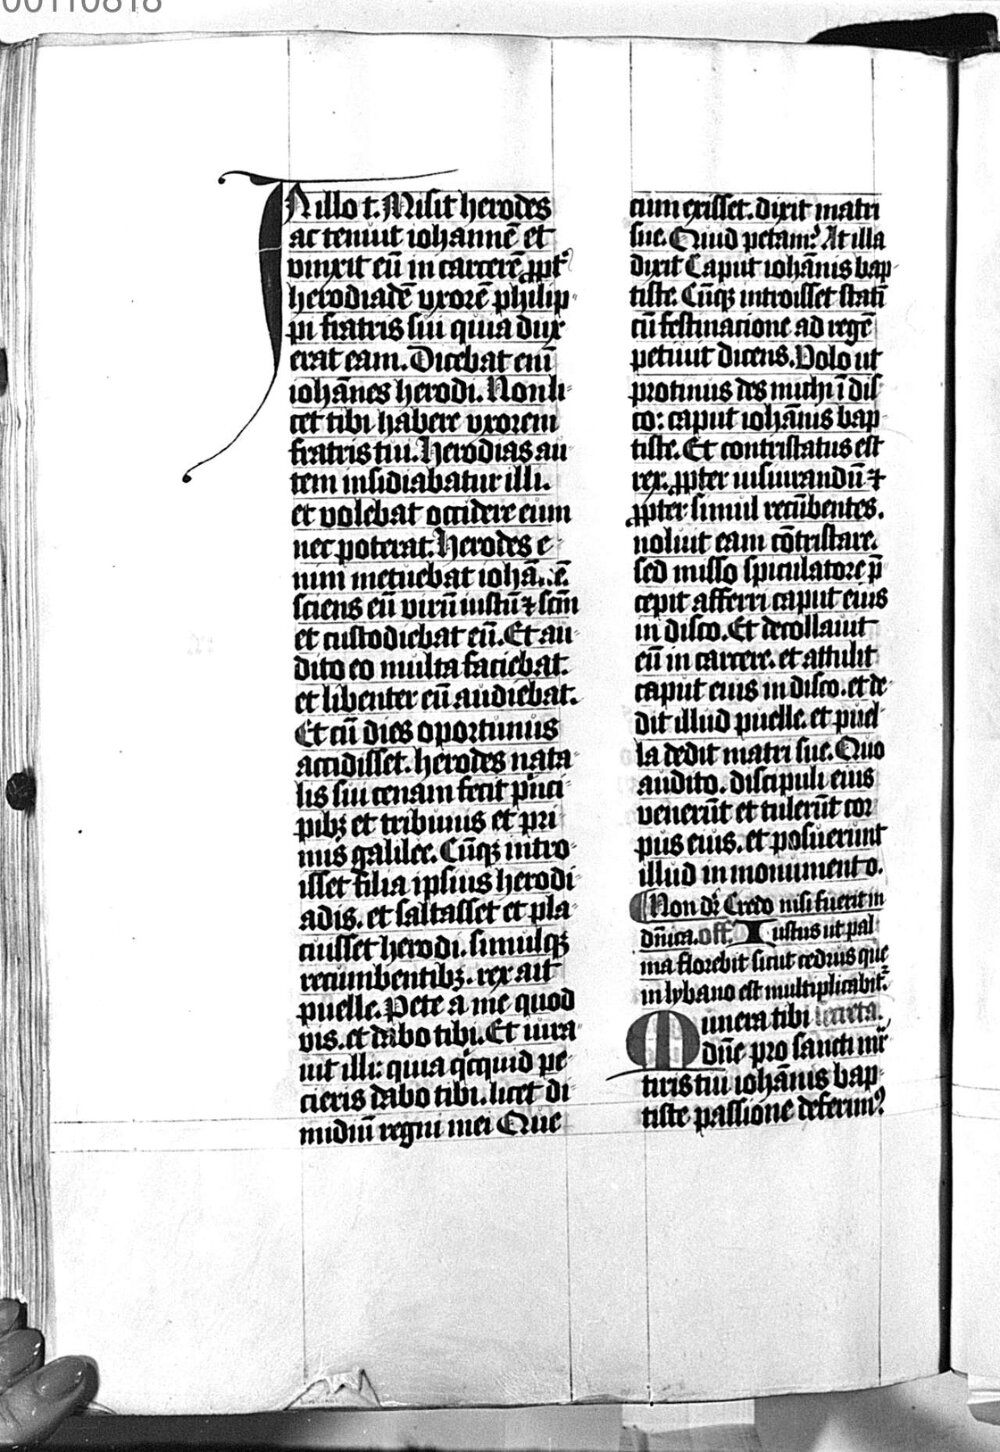 00110818
IN illo t. Misit herodes
ac tenuit iohannē et
vinxit eū in carcerē ꝓpt̄
herodiadē vxorē philip-
pi fratris sui quia dux
erat eam. Dicebat enī
iohānes herodi. Non li-
cet tibi habere vxorem
fratris tui. Herodias au
tem insidiabatur illi.
et volebat occidere eum
nec poterat. Herodes e-
nim metuebat iohā..ē.
sciens eū virū iustū ⁊ scm̄
et custodiebat eū. Et au-
dito eo multa faciebat.
et libenter eū audiebat.
Et cū dies oportunus
accidisset. herodes nata-
lis sui cenam fecit p̄nci-
pibꝫ et tribunis et pri
mis galilee. Cūqꝫ intro-
isset filia ipsius herodi-
adis. et saltasset et pla-
cuisset herodi. simulqꝫ
recumbentibꝫ. rex ait
puelle. Pete a me quod
vis. et dabo tibi. Et iura-
uit illi: quia qicquid pe-
cieris dabo tibi. licet di
midiū regni mei Que
cum exisset. dixit matri
sue. Quid petam? At illa
dixit Caput iohānis bap-
tiste. Cūqꝫ introisset statī
cū festinacione ad regē
petiuit dicens. Volo ut
protinus des michi ī dis-
co: caput iohānis bap-
tiste. Et contristatus est
rex. ꝓpter iusiurandū ⁊
ꝓpter simul recūbentes.
noluit eam cōtristare.
sed misso spiculatore p̄
cepit afferri caput eius
in disco. Et decollauit
eū in carcere. et attulit
caput eius in disco. et de-
dit illud puelle. et puel-
la dedit matri sue. Quo
audito. discipuli eius
venerūt et tulerūt cor
pus eius. et posuerunt
illud in monumento.
Non dr̄ Credo nisi fuerit in
dn̄ica. off. Iustus ut pal
ma florebit sicut cedrus que
in lybano est multiplicabit᷑.
Munera tibi secreta.
dn̄e pro sancti mr̄
tiris tui iohānis bap-
tiste passione deferim᷒